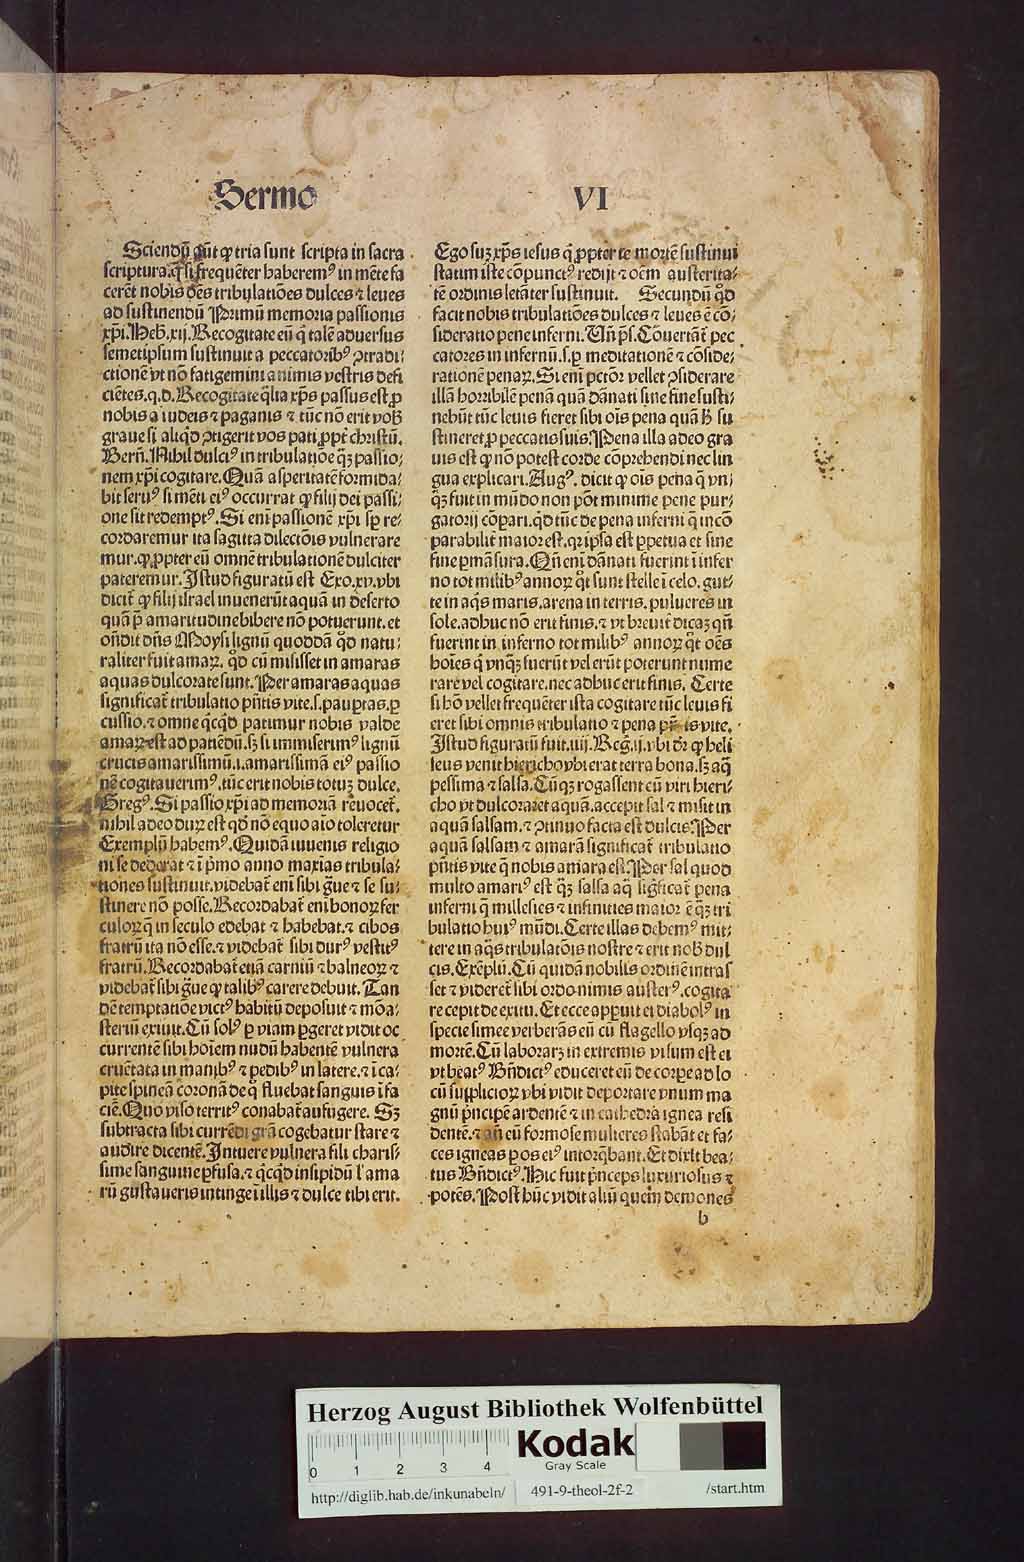 Sermo VI
Sciendũ aũt ꝙ tria sunt scripta in sacra
scriptura. q̃ si frequẽter haberemꝰ in mẽte fa
cerẽt nobis oẽs tribulatiões dulces ⁊ leues
ad sustinendũ Primũ memoria passionis
xp̃i. Heb̃. xij. Recogitate eũ q̃ talẽ aduersus
semetipsum sustinuit a peccatoribꝰ ꝯtradi⸗
ctionẽ vt nõ fatigemini animis vestris defi
ciẽtes. q.d. Recogitate q̃lia xp̃s passus est ꝓ
nobis a iudeis ⁊ paganis ⁊ tũc nõ erit vob̃
graue si aliq̃d ꝯtigerit vos pati ꝓpt̃ christũ.
Berñ. Nihil dulciꝰ in tribulatiõe q̃ꝫ passio⸗
nem xp̃i cogitare. Quã asperitatẽ formida⸗
bit seruꝰ si mẽti eiꝰ occurrat ꝙ filij dei passi⸗
one sit redemptꝰ. Si eni passionẽ xp̃i sp̃ re⸗
cordaremur ita sagitta dilectõis vulnerare
mur. ꝙ ꝓpter eũ omnẽ tribulationẽ dulciter
pateremur. Istud figuratũ est Exo. xv. vbi
dicit̃ ꝙ filij israel inuenerũt aquã in deserto
quã p̃ amaritudine bibere nõ potuerunt. et
oñdit dñs Moysi lignũ quoddã q̊d natu⸗
raliter fuit amaꝝ. q̊d cũ misisset in amaras
aquas dulcorate sunt. Per amaras aquas
significat̃ tribulatio pñtis vite. s. paup̲tas. p̲
cussio. ⁊ omne q̃cq̃d patimur nobis valde
amaꝝ est ad patiẽdũ. sꝫ si immiserimꝰ lignũ
crucis amarissimũ. i. amarissimã eiꝰ passio
nẽ cogitauerimꝰ. tũc erit nobis totuꝫ dulce.
Gregꝰ. Si passio xp̃i ad memoriã reuocet̃.
nihil adeo duꝝ est qd̃ nõ equo aĩo toleretur
Exemplũ habemꝰ. Quidã iuuenis religio
ni se dederat ⁊ ĩ p̃mo anno maxias tribula⸗
tiones sustinuit. videbat̃ eni sibi g̃ue ⁊ se su⸗
stinere nõ posse. Recordabat̃ eni bonoꝝ fer
culoꝝ q̃ in seculo edebat ⁊ habebat. ⁊ cibos
fratrũ ita nõ esse. ⁊ videbat̃ sibi durꝰ vestitꝰ
fratrũ. Recordabat̃ etiã carniũ ⁊ balneoꝝ ⁊
videbat̃ sibi g̃ue ꝙ talibꝰ carere debuit. Tan
dẽ temptatiõe victꝰ habitũ deposuit ⁊ mõa⸗
steriũ exiuit. Cũ solꝰ p̲ viam p̲geret vidit oc
currentẽ sibi hoĩem nudũ habentẽ vulnera
cruẽtata in manibꝰ ⁊ pedibꝰ in latere. ⁊ ĩ ca⸗
pite spineã coronã de q̃ fluebat sanguis ĩ fa
ciẽ. Quo viso territꝰ conabat̃ aufugere. Sꝫ
subtracta sibi currẽdi grã cogebatur stare ⁊
audire dicentẽ. Intuere vulnera fili charis⸗
sime sanguine p̲fusa. ⁊ q̃cq̃d insipidũ l̃ ama
rũ gustaueris intinge ĩ illis ⁊ dulce tibi erit.
Ego suꝫ xp̃s iesus q̃ ꝓpter te mortẽ sustinui
statim iste cõpunctꝰ redijt ⁊ oẽm austerita⸗
tẽ ordinis letãter sustinuit. Secundũ q̊d
facit nobis tribulatiões dulces ⁊ leues ẽ cõ⸗
sideratio pene inferni. Uñ p̃s. Cõuertãt̃ pec
catores in infernũ. s. p̲ meditationẽ ⁊ cõside⸗
rationẽ penaꝝ. Si eni pctõr vellet ꝯsiderare
illã horribilẽ penã quã dãnati sine fine susti⸗
nebũt tũc leuis fieret sibi oĩs pena quã h̃ su
stineret ꝓ peccatis suis. Pena illa adeo gra
uis est ꝙ nõ potest corde cõprehendi nec lin
gua explicari. Augꝰ. dicit ꝙ oĩs pena q̃ vn⸗
q̃ꝫ fuit in mũdo non põt minime pene pur⸗
gatorij cõpari. q̊d tũc de pena inferni q̃ incõ
parabilit̃ maior est. qꝛ ipsa est p̲petua et sine
fine p̲mãsura. Qñ eni dãnati fuerint ĩ infer
no tot milibꝰ annoꝝ q̊t sunt stelle ĩ celo. gut⸗
te in aq̃s maris. arena in terris. pulueres in
sole. adhuc nõ erit finis. ⁊ vt breuit̃ dicaꝫ qñ
fuerint in inferno tot milibꝰ annoꝝ q̊t oẽs
hoĩes q̃ vnq̃ꝫ fuerũt vel erũt poterunt nume
rare vel cogitare. nec adhuc erit finis. Certe
si hõ vellet frequẽter ista cogitare tũc leuis fi
eret sibi omnis tribulatio ⁊ pena pñtis vite.
Istud figuratũ fuit. iiij. Reg̃. ij. vbi dr̃ ꝙ heli
seus venit hiericho vbi erat terra bona. sꝫ aq̃
pessima ⁊ salsa. Cũqꝫ rogassent eũ viri hieri⸗
cho vt dulcoraret aquã. accepit sal ⁊ misit in
aquã salsam. ⁊ ꝯtinuo facta est dulcis. Per
aquã salsam ⁊ amarã significat̃ tribulatio
pñtis vite q̃ nobis amara est. Per sal quod
multo amariꝰ est q̃ꝫ salsa aq̃ sig̃ficat̃ pena
inferni q̃ millesies ⁊ infinities maior ẽ q̃ꝫ tri
bulatio huiꝰ mũdi. Certe illas debemꝰ mit⸗
tere in aq̃s tribulatõis nostre ⁊ erit nob̃ dul
cis. Exẽplũ. Cũ quidã nobilis ordinẽ intras
set ⁊ videret̃ sibi ordo nimis austerꝰ. cogita
re cepit de exitu. Et ecce apparuit ei diabolꝰ in
specie simee verberãs eũ cũ flagello vsqꝫ ad
mortẽ. Cũ laboraꝫ in extremis visum est ei
vt beatꝰ Bñdictꝰ educeret eũ de corpe ad lo
cũ supplicioꝝ vbi vidit deportare vnum ma
gnũ p̃ncipẽ ardentẽ ⁊ in cathedra ignea resi
dentẽ. ⁊ añ eũ formose mulieres stabãt et fa⸗
ces igneas p̲ os eiꝰ intorq̃bant. Et dixit bea⸗
tus Bñdictꝰ. Hic fuit p̃nceps luxuriosus ⁊
potẽs. Post hũc vidit aliũ quem demones
b
Herzog August Bibliothek Wolfenbüttel
0 1 2 3 4
Kodak
Gray Scale
http://diglib.hab.de/inkunabeln/ 491-9-theol-2f-2 /start.htm